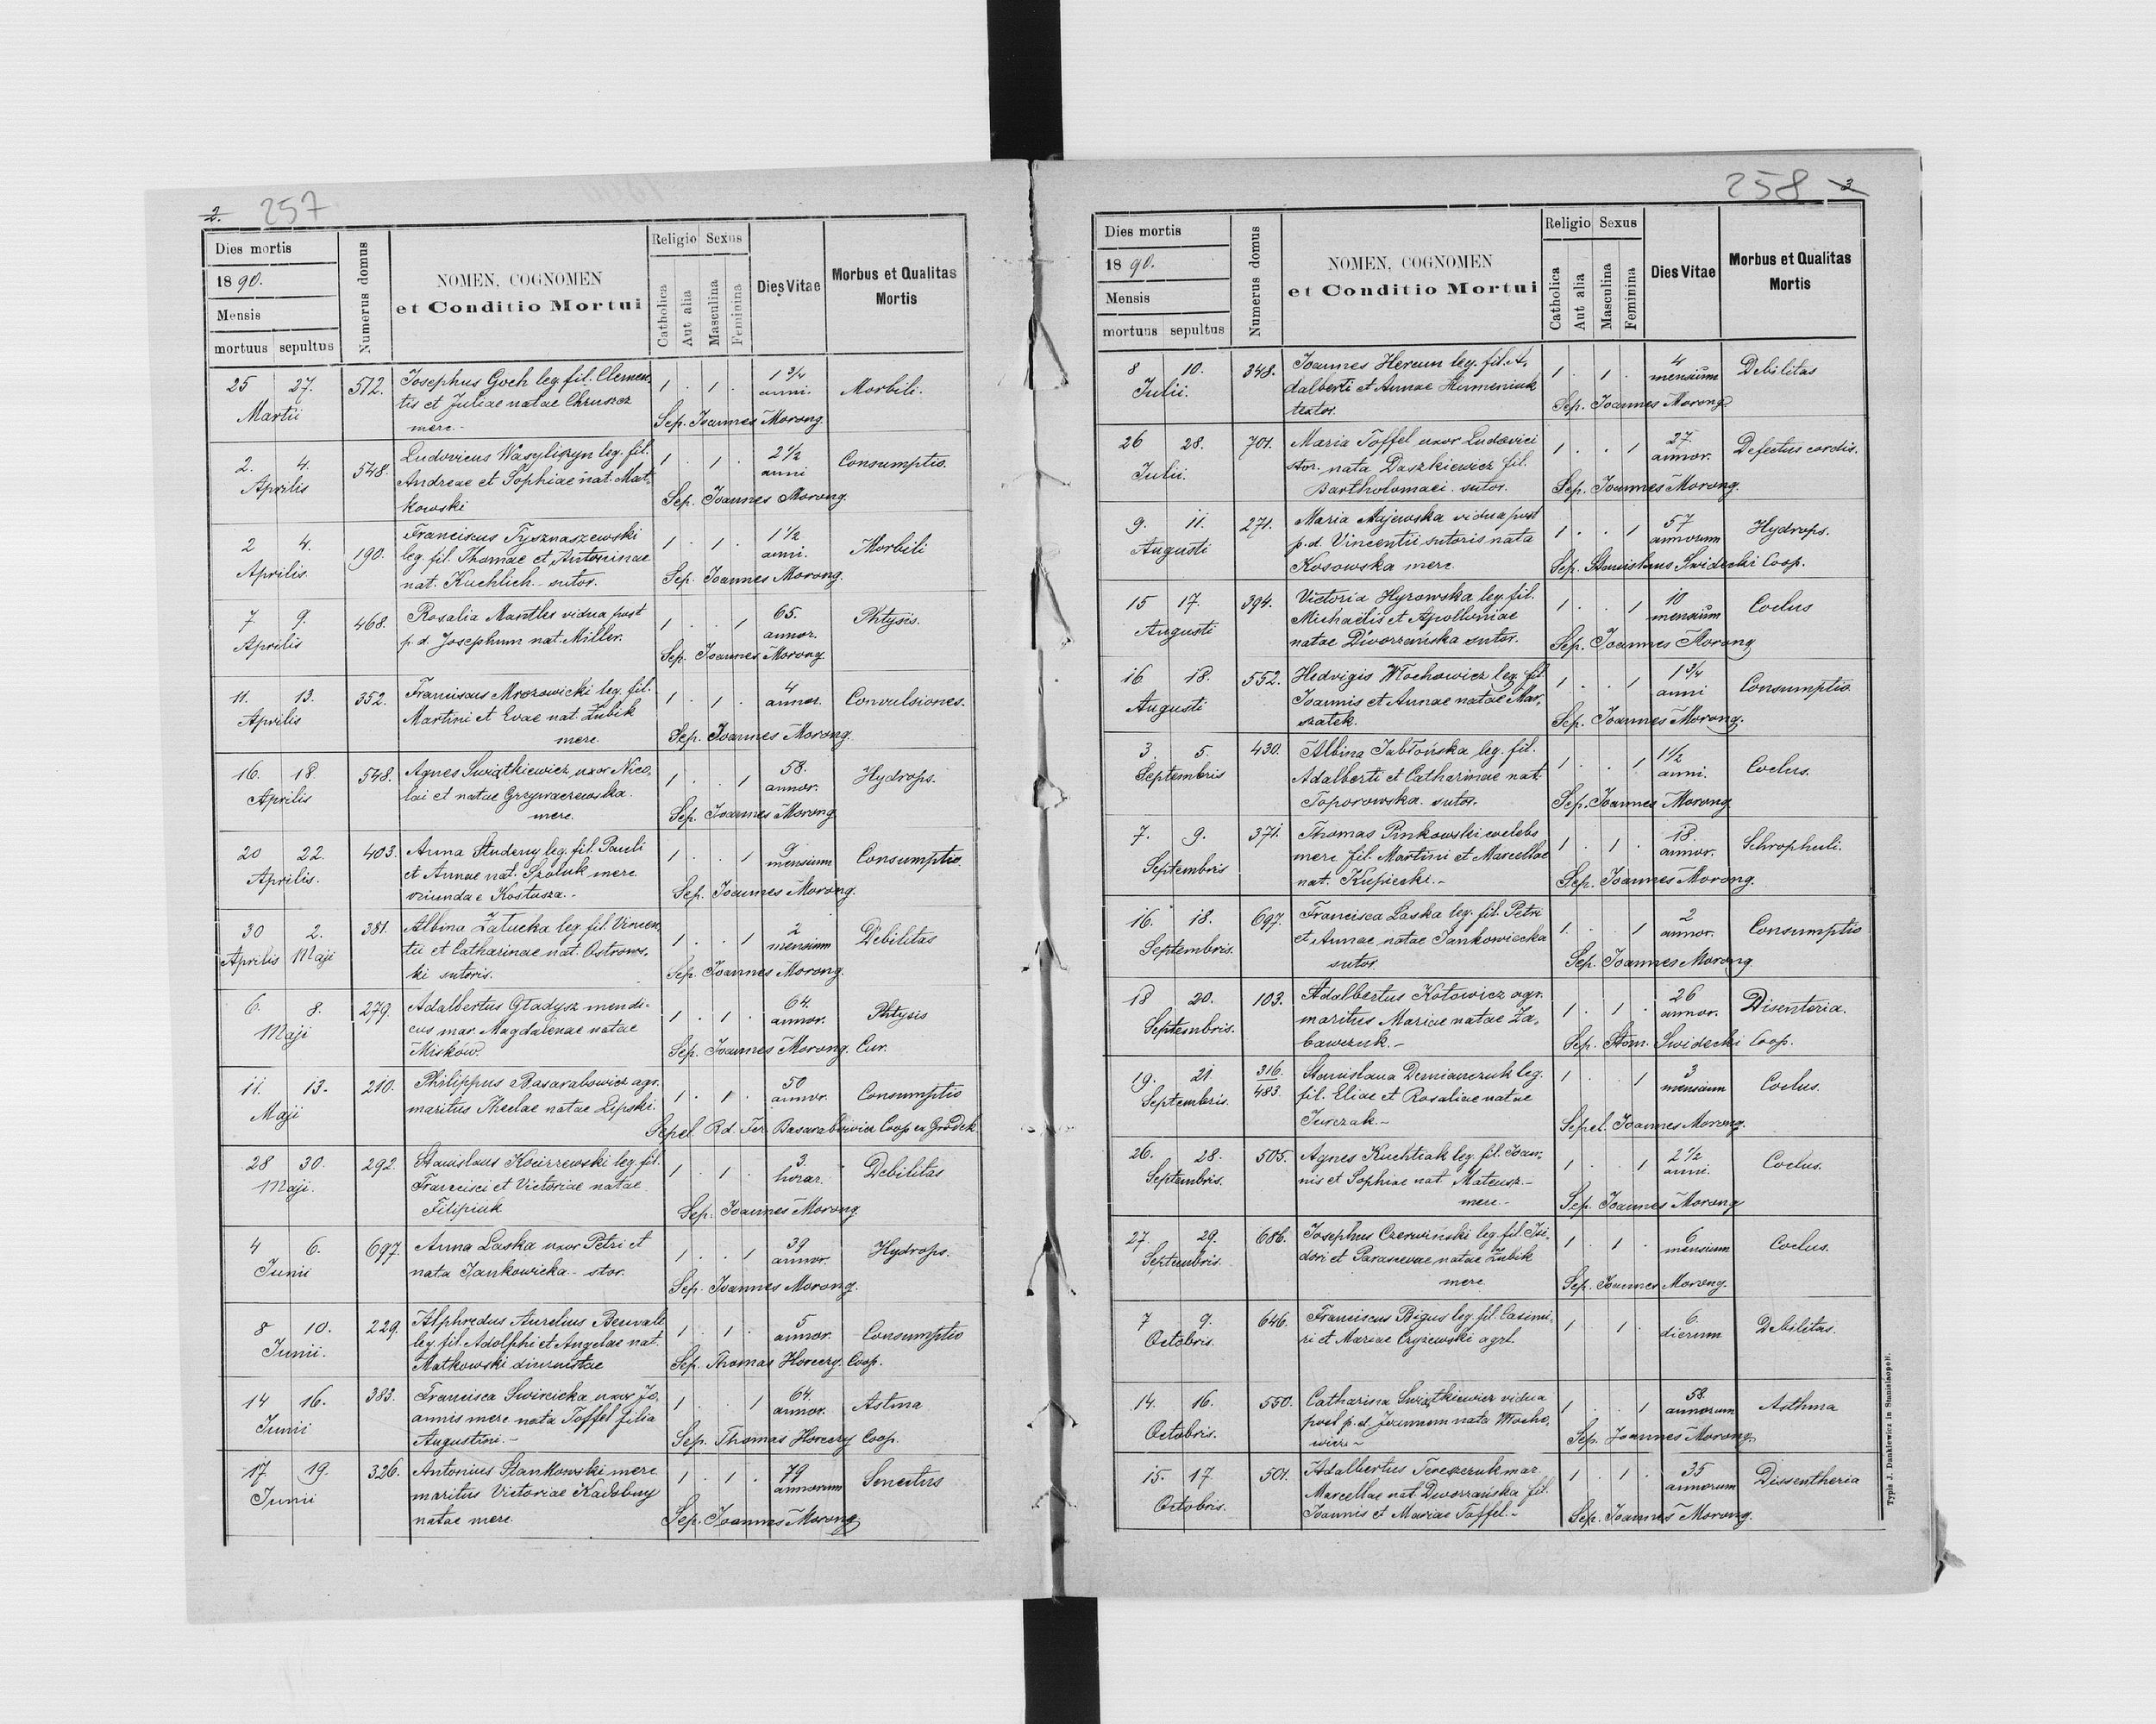 2. 257
Dies mortis
1890.
Mensis
mortuus sepultus
Numerus domus
NOMEN, COGNOMEN
et Conditio Mortui
Religio Sexus
Catholica
Aut alia
Masculina
Feminina
Dies Vitae
Morbus et Qualitas
Mortis
25 27. 512. Josephus Goch leg. fil. Clemen,
tis et Juliae natae Chruszcz
merc.
Martii
1 . 1 . 1 3/4
anni. Morbili.
Sep. Joannes Morong.
2. 4. 548. Ludovicus Wasyliszyn leg. fil.
Andreae et Sophiae nat. Mat,
kowski
Aprilis
1 . 1 . 2 1/2
anni Consumptio.
Sep. Joannes Morong.
2 4. 190. Franciscus Tysznaszewski
leg. fil. Thomae et Antoninae
nat. Kuchlich - sutor.
Aprilis.
1 . 1 . 1 1/2
anni. Morbili
Sep. Joannes Morong.
7 9. 468. Rosalia Mantler vidua post
p. d. Josephum nat. Miller.
Aprilis
1 . . 1 65.
annor. Phtysis.
Sep. Joannes Morong.
11. 13. 352. Franciscus Mrozowicki leg. fil.
Martini et Evae nat. Zubik
merc.
Aprilis
1 . 1 . 4
annor. Convulsiones.
Sep. Joannes Morong.
16. 18. 548. Agnes Swiątkiewicz uxor Nico,
lai et natae Grzywaczewska
merc.
Aprilis
1 . . 1 58.
annor. Hydrops.
Sep. Joannes Morong.
20 22. 403. Anna Studeny leg. fil. Pauli
et Annae nat. Szoluk merc
oriundae Kostusza.-
Aprilis.
1 . . 1 9
mensium Consumptio.
Sep. Joannes Morong.
30 2. 381. Albina Załucka leg. fil. Vincen,
tii et Catharinae nat. Ostrows,
ki sutoris.
Aprilis Maji
1 . . 1 2
mensium Debilitas
Sep. Joannes Morong.
6. 8. 279. Adalbertus Gładysz mendi-
cus mar. Magdalenae natae
Misków.
Maji
1 . 1 . 64.
annor. Phtysis
Sep. Joannes Morong. Cur.
11. 13. 210. Philippus Basarabowicz agr.
maritus Theclae natae Lipski.
Maji
1 . 1 . 50
annor. Consumptio
Sepel. Rd. Fer. Basarabowicz Coop ex Gródek
28 30. 292. Stanislaus Kocirzewski leg. fil.
Francisci et Victoriae natae
Filipiuk
Maji.
1 . 1 . 3
horar. Debilitas
Sep. Joannes Morong.
4 6. 697. Anna Laska uxor Petri et
nata Jankowicka - stor.
Junii
1 . . 1 39
annor. Hydrops.
Sep. Joannes Morong.
8 10. 229. Alphredus Aurelius Beuvale
leg. fil. Adolphi et Angelae nat.
Matkowski diurnistae
Junii.
1 . 1 . 5
annor. Consumptio
Sep. Thomas Horeczy. Coop.
14 16. 383. Francisca Swiricicka uxor Jo,
annis merc. nata Toffel filia
Augustini.-
Junii
1 . . 1 64.
annor. Astma
Sep. Thomas Horeczy Coop.
17 19. 326. Antonius Stankowski merc.
maritus Victoriae Kadobny
natae merc.
Junii
1 . 1 . 79
annorum Senectus
Sep. Joannes Morong.
258 3
Dies mortis
1890.
Mensis
mortuus sepultus
Numerus domus
NOMEN, COGNOMEN
et Conditio Mortui
Religio Sexus
Catholica
Aut alia
Masculina
Feminina
Dies Vitae
Morbus et Qualitas
Mortis
8 10. 348. Joannes Hereun leg. fil. A,
dalberti et Annae Humeniuk
textor.
Julii.
1 . 1 . 4
mensium Debilitas
Sep. Joannes Morong.
26 28. 701. Maria Toffel uxor Ludovici
stor. nata Daszkiewicz fil.
Bartholomaei. sutor.
Julii.
1 . . 1 27.
annor. Defectus cordis.
Sep. Joannes Morong.
9. 11. 271. Maria Majewska vidua post
p. d. Vincentii sutoris nata
Kosowska merc
Augusti
1 . . 1 57
annorum Hydrops.
Sep. Stanislaus Swidecki Coop.
15 17. 394. Victoria Hyrowska leg. fil.
Michaëlis et Apolloniae
natae Dworzańska sutor.
Augusti
1 . . 1 10
mensium Coclus
Sep. Joannes Morong
16 18. 552. Hedvigis Włochowicz leg. fil.
Joannis et Annae natae Mar,
szałek.
Augusti
1 . . 1 1 3/4
anni Consumptio.
Sep. Joannes Morong.
3 5. 430. Albina Jabłońska leg. fil.
Adalberti et Catharinae nat.
Toporowska. sutor.
Septembris
1 . . 1 1 1/2
anni. Coclus.
Sep. Joannes Morong.
7. 9. 371. Thomas Pinkowski coelebs
merc. fil. Martini et Marcellae
nat. Kupiecki.-
Septembris
1 . 1 . 18
annor. Schrophuli.
Sep. Joannes Morong.
16. 18. 697. Francisca Laska leg. fil. Petri
et Annae natae Jankowiecka
sutor.
Septembris.
1 . . 1 2
annor. Consumptio
Sep. Joannes Morong.
18 20. 103. Adalbertus Kotowicz agr.
maritus Mariae natae Za,
bawczuk.-
Septembris.
1 . 1 . 26
annor. Disenteria.
Sep. Stan. Swidecki Coop.
19. 21 316.
483. Stanislaua Demianczuk leg.
fil. Eliae et Rosaliae natae
Jurczak.-
Septembris.
1 . . 1 3
mensium Coclus.
Sepel. Joannes Morong.
26. 28. 505. Agnes Kuchtiak leg. fil. Joan,
nis et Sophiae nat. Mateusz.-
merc.-
Septembris.
1 . . 1 2 1/2
anni. Coclus.
Sep. Joannes Morong
27. 29. 686. Josephus Czerwiński leg. fil. Isi,
dori et Parascevae natae Zubik
merc.
Septembris.
1 . 1 . 6
mensium Coclus.
Sep. Joannes Morong.
7 9. 646. Franciscus Bigus leg. fil. Casimi,
ri et Mariae Czyżewski agrl.
Octobris.
1 . 1 . 6.
dierum Debilitas.
14. 16. 550. Catharina Swiątkiewicz vidua
post p. d. Joannem nata Włocho,
wicz.-
Octobris.
1 . . 1 58.
annorum Asthma
Sep. Joannes Morong.
15. 17. 501. Adalbertus Tereszczuk mar.
Marcellae nat. Dworzańska fil.
Joannis et Mariae Toffel.-
Octobris.
1 . 1 . 35
annorum Dissentheria
Sep. Joannes Morong.
Typis J. Dankiewicz in Stanislaopoli.